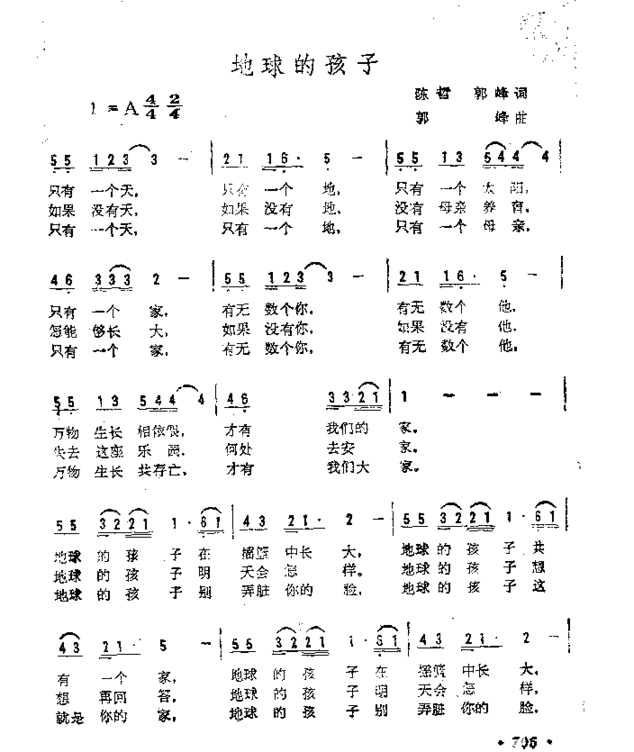 地球的孩子
1=A 4/4 2/4
陈哲 郭峰词
郭 峰曲
5 5 1 2 3 3 － | 2 1 1 6· 5 － | 5 5 1 3 6 4 4 4 － |
只有 一个天, 只有 一个 地, 只有 一个 太 阳,
如果 没有天, 如果 没有 地, 没有 母亲 养 育,
只有 一个天, 只有 一个 地, 只有 一个 母 亲,
4 6 3 3 3 2 － | 5 5 1 2 3 3 － | 2 1 1 6· 5 － |
只有 一 个 家, 有无 数个你, 有无 数个 他,
怎能 够长 大, 如果 没有你, 如果 没有 他,
只有 一 个 家, 有无 数个你, 有无 数个 他。
5 5 1 3 5 4 4 4 | 4 6 3 3 2 1 | 1 － － － |
万物 生长 相依偎, 才有 我们的 家。
失去 这座 乐园, 何处 去安 家。
万物 生长 共存亡, 才有 我们大 家。
5 5 3 2 2 1 1· 6 1 | 4 3 2 1· 2 － | 5 5 3 2 2 1 1· 6 1 |
地球 的 孩 子 在 摇篮 中长 大, 地球 的 孩 子 共
地球 的 孩 子 明 天会 怎 样。 地球 的 孩 子 想
地球 的 孩 子 别 弄脏 你的 脸, 地球 的 孩 子 这
4 3 2 1· 5 － | 5 5 3 2 2 1 1· 6 1 | 4 3 2 1· 2 － |
有 一 个 家, 地球 的 孩 子 在 摇篮 中长 大,
想 再回 答, 地球 的 孩 子 明 天会 怎 样,
就是 你的 家, 地球 的 孩 子 别 弄脏 你的 脸,
· 705 ·